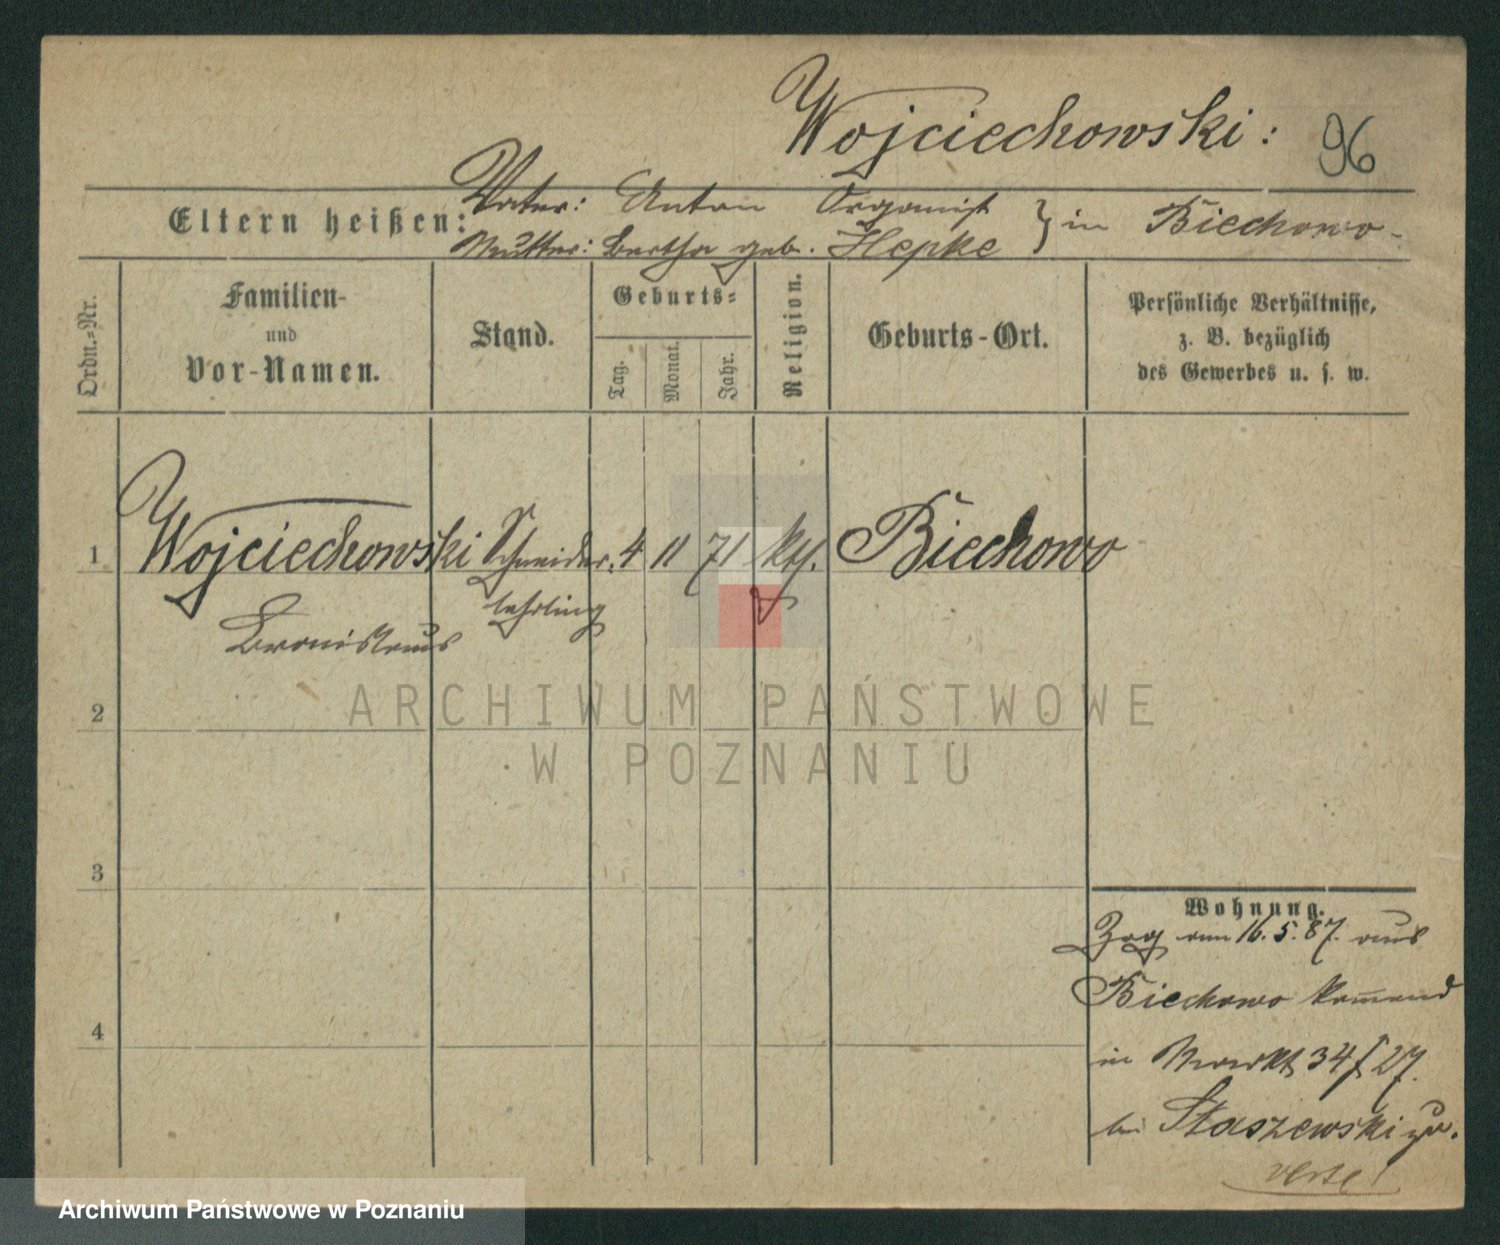 Wojciechowski:
96
Eltern heißen:
Vater: Anton Organist } in Biechowo.
Mutter: Bertha geb. Hepke
Ordn.-Nr.
Familien-
und
Vor-Namen.
Stand.
Geburts-
Tag.
Monat.
Jahr.
Religion.
Geburts-Ort.
Persönliche Verhältnisse,
z. B. bezüglich
des Gewerbes u. s. w.
1 Wojciechowski Schneider- 4 11 71 kth. Biechowo
lehrling
Bronislaus
2
ARCHIWUM PAŃSTWOWE
W POZNANIU
3
4
Wohnung.
Zog am 16.5.87. aus
Biechowo kom̅end
in Markt 34/27.
bei Staszewski zu.
verte!
Archiwum Państwowe w Poznaniu